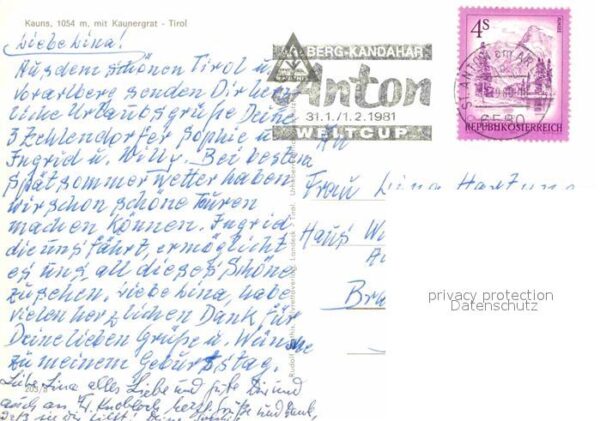 Kauns, 1054 m, mit Kaunergrat - Tirol
Liebe Lina!
Aus dem schönen Tirol u.
Vorarlberg senden Dir herz-
liche Urlaubsgrüße Deine
3 Zehlendorfer Sophie u.
Ingrid u. Willy. Bei bestem
Spätsommerwetter haben
wir schon schöne Turen
machen können. Ingrid
die uns fährt, ermöglicht
es uns all dieses Schöne
zu sehen. Liebe Lina, habe
vielen herzlichen Dank für
Deine lieben Grüße u. Wünsche
zu meinem Geburtstag.
Liebe Lina alles Liebe und gute Dir und
auch an Fr. Knobloch herzl. Grüße und Dank,
BERG-KANDAHAR
Anton
31.1./1.2.1981
WELTCUP
4S
ST. ANTON am AR
6580
REPUBLIK ÖSTERREICH
An
Frau Lina Hartung
Haus
privacy protection
Datenschutz